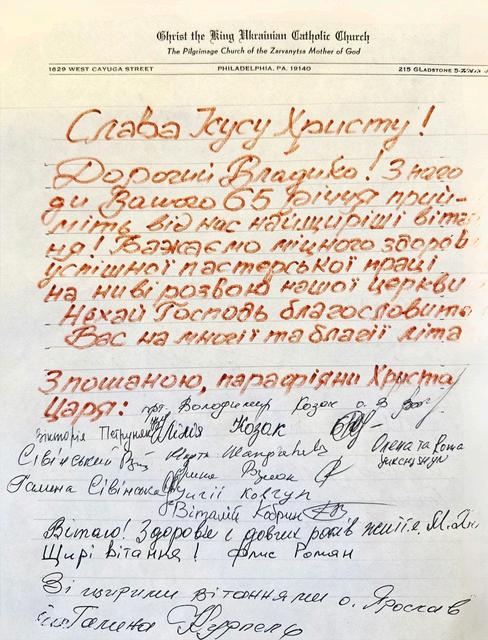 Christ the King Ukrainian Catholic Church
The Pilgrimage Church of the Zarvanytsa Mother of God
1629 WEST CAYUGA STREET PHILADELPHIA, PA. 19140 215 GLADSTONE
Слава Ісусу Христу!
Дорогий Владико! З наго
ди Вашого 65 річчя прий-
міть від нас найщиріші віта
ня! Бажаємо міцного здоров
успішної пастерської праці
на ниві розвою нашої церкви
Нехай Господь благословить
Вас на многії та благії літа
З пошаною, парафіяни Христа
Царя:
прт. Володимир Козак о. В
Вікторія Петруняк Лілія Козак Олена та Рома
Сівінський
Галина Сівінська Ковтун
Віталій Кобрин
Вітаю! Здоров'я і довгих років життя.
Щирі вітання! Роман
Зі щирими вітаннями о. Ярослав
їм. Галина Курпель